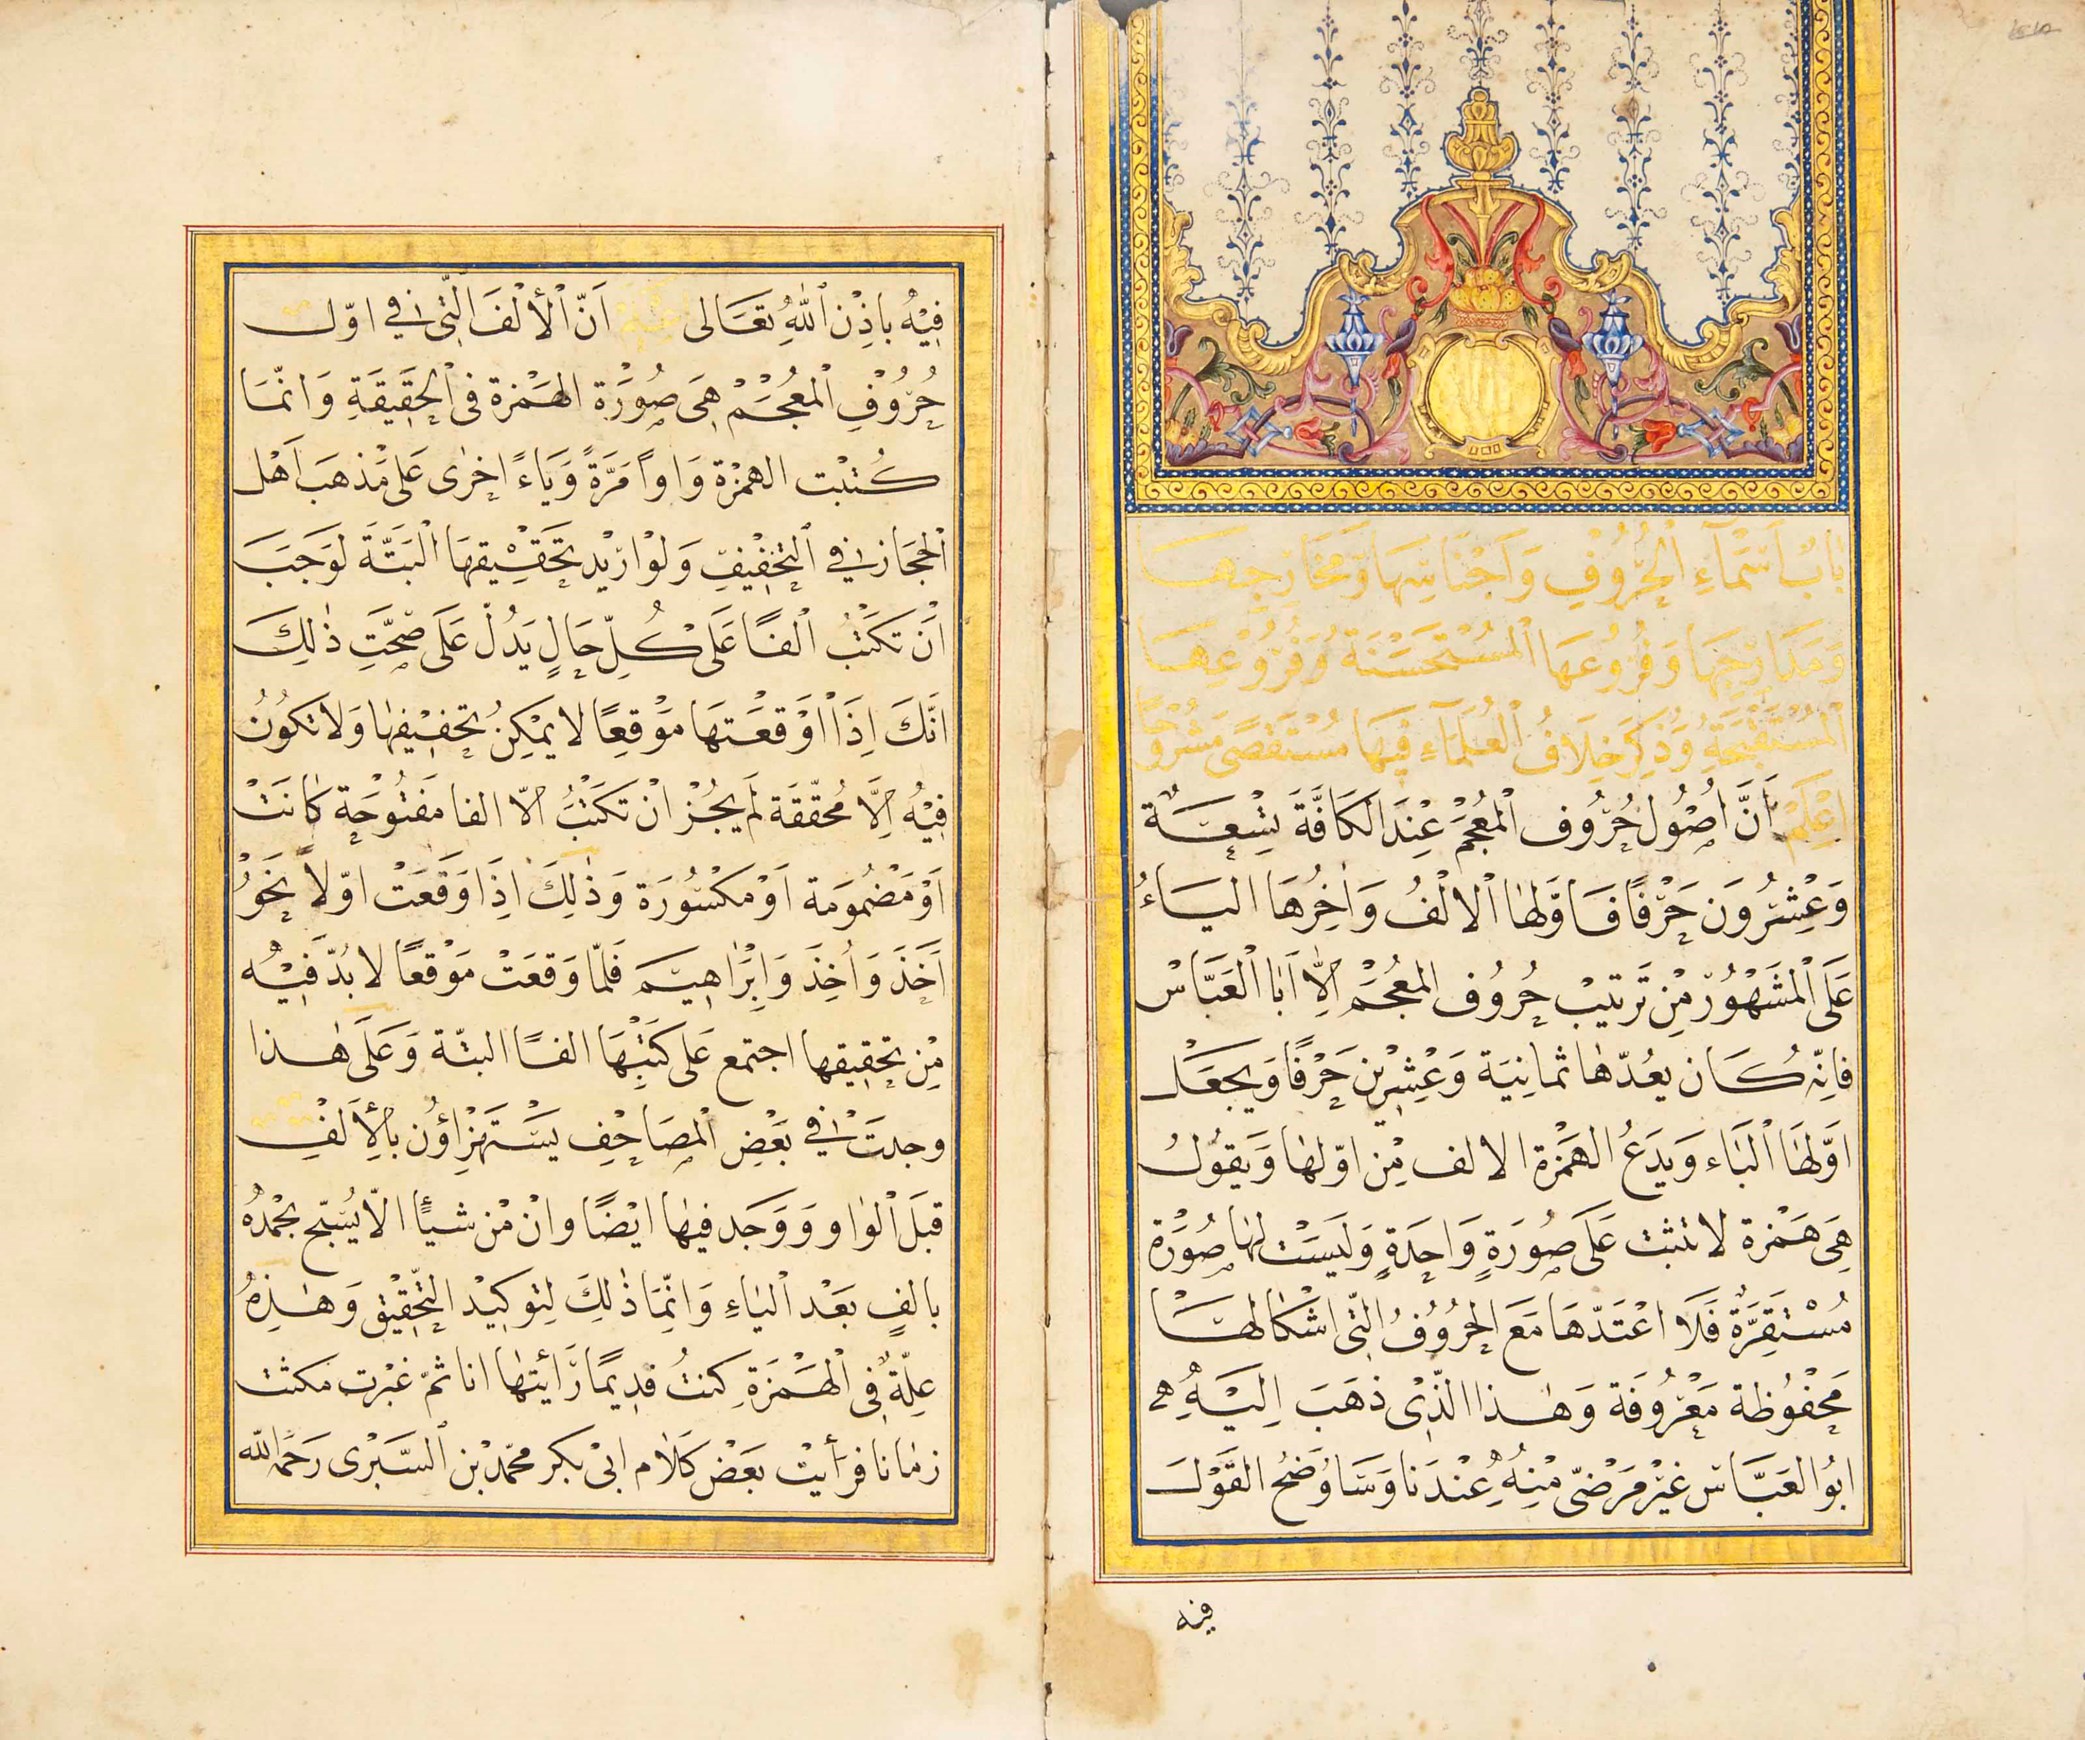 بَابُ اَسْمَآءِ الْحُرُوْفِ وَاَجْنَاسِهَا وَمَخَارِجِهَا
وَمَدَارِجِهَا وَفُرُوْعِهَا الْمُسْتَحْسَنَةِ وَفُرُوْعِهَا
الْمُسْتَقْبَحَةِ وَذِكْرِ خِلَافُ الْعُلَمَآءِ فِيْهَا مُسْتَقْصًى مَشْرُوْحًا
اِعْلَمْ اَنَّ اُصُوْلَ حُرُوْف الْمُعْجَمْ عِنْدَ الْكَافَّةَ تِسْعَةٌ
وَعِشْرُوْنَ حَرْفًا فَاَوَّلهَا الْاَلْفُ وَاٰخِرُهَا اليَاءُ
عَلَى الْمَشَهْوُرْ مِنْ تَرتيبْ حُروُف المعْجَمْ اِلّا اَبَا الْعَبَّاسْ
فاِنّه كَان يعُدّها ثمانِيَة وَعْشِرِين حَرْفًا وَيجعَل
اَوَّلهَا الْبَاء وَيدَعُ الهَمْزة الالف مِنْ اوّلها وَيَقوُلُ
هِىَ هَمْزة لا تثبت عَلَى صُورَةٍ وَاحِدَةٍ وَليَسَتْ لها صُوْرَة
مُسْتَقِرَّةٌ فَلَا اعْتَدّهَا مَعَ الحُروُفُ الّتى اشْكالهَا
مَحْفوُظة مَعْرُوُفَة وَهٰذا الّذِىْ ذهَبَ اِليَهْ
ابُو العَبَّاسْ غيْر مَرْضىّ مْنِهُ عِنْدَنا وَسَاوُضحُ القَوْلَ
فيه
فِيْهُ باِذِنْ اللهُ تعَالى اَنّ الْاَلْفَ الّتِى فِي اوّل
حُرُوْفِ الْمعْجَمْ هِىَ صُوْرَة الهَمْزة فى الْحَقِيْقَةِ وَانّمَا
كُتِبْت الهمْزة وَاوًا مَرَّةً وَيَاءً اخرٰى عَلى مَذهَبَ اَهْل
الْحجَاز فِي التخفِيْفِ وَلوْ ارَيْد تحَقْيْقِهَا الْبَتَّةَ لوَجَبَ
اَنْ تكَتْبُ الْفًا عَلَى كُلِّ حَالٍ يَدُلّ عَلَى صْحَّتِ ذٰلِكَ
انّكَ اِذَا اَوْقعَتهَا مَوْقِعًا لا يمْكِنُ تخفِيْفِهٰا وَلا تكوُنُ
فِيْهُ اِلَّا مُحقّقَة لَمْ يجُزْ اَنْ تكَتْبُ الّا الفا مَفتوُحَة كٰانَتْ
اَوْ مَضْمُومَة اَوْ مكسْوُرَة وَذٰلِكَ اذِا وَقعَتْ اوّلاً نحَوُ
اَخَذَ وَاُخِذَ وَاِبْرَاهِيْمَ فَلمّا وَقعَتْ مَوْقعًا لا بُدّ فِيْهُ
مِنْ تحقِيقِهَا اجتمع عَلى كَتبْهَا الفًا البتّة وَعَلَى هٰذا
وجدتَ فِي بَعْضِ الْمصَاحِفِ يَسْتَهْزِاؤُن بالْاَلْفِ
قبلَ الْوَاو وَوَجَد فيهَا ايْضًا وانْ مْن شيأً الّا يُسَّبّح بحْمدهُ
بالفٍ بَعْدَ الْيٰاءِ وَانِّمَا ذٰلِكَ لِتوكيْد التحّقِيْق وَهٰذِهُ
عِلّةٌ فِى الْهَمْزَة كنْتُ قدِيمًا رَأَيتهَا انا ثمّ غبْرت مكثت
زمَانا فرَأيتْ بعَضْ كَلَام ابىْ بكر محمّد بْن السَّبْرى رَحمَهُ الله